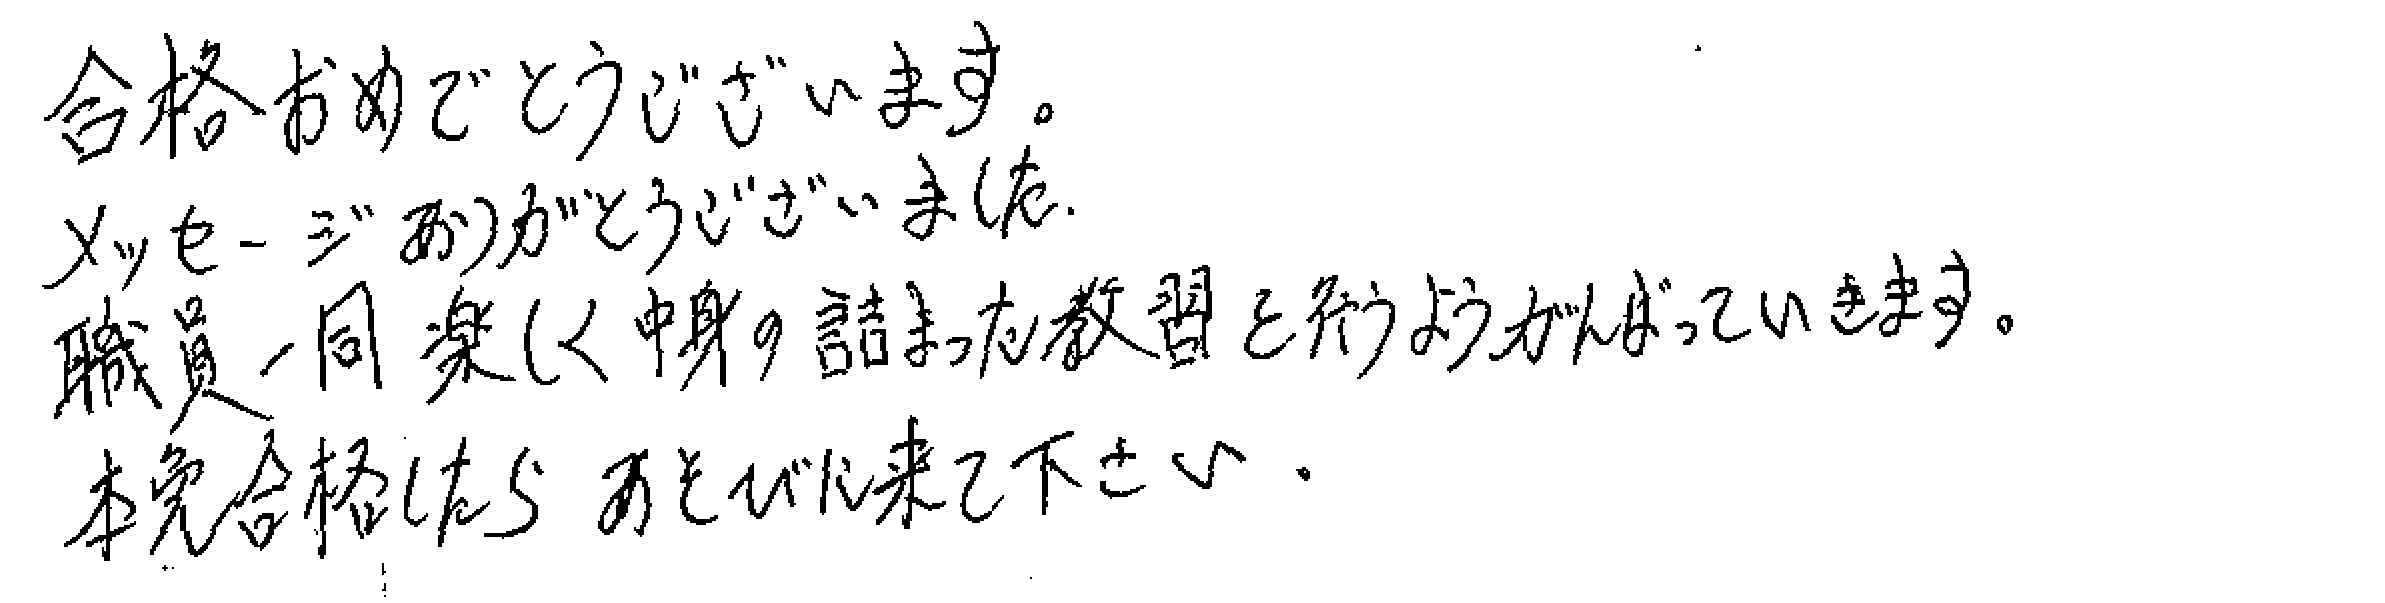 合格おめでとうございます。
メッセージありがとうございました.
職員一同 楽しく中身の詰まった教習を行うようがんばっていきます。
本免合格したら あそびに来て下さい.